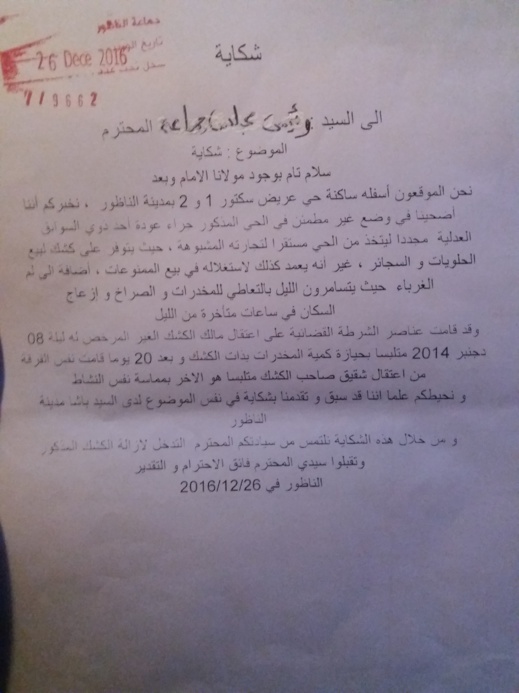 جماعة الناظور
تاريخ
26 Dece 2016
7/9662
شكاية
الى السيد رئيس مجلس جماعة المحترم
الموضوع : شكاية
سلام تام بوجود مولانا الامام وبعد
نحن الموقعون أسفله ساكنة حي عريض سكتور 1 و 2 بمدينة الناظور ، نخبركم أننا
أصحبنا في وضع غير مطمئن في الحي المذكور جراء عودة أحد ذوي السوابق
العدلية مجددا ليتخذ من الحي مستقرا لتجارته المشبوهة ، حيث يتوفر على كشك لبيع
الحلويات و السجائر ، غير أنه يعمد كذلك لاستغلاله في بيع الممنوعات ، أضافة الى لم
الغرباء حيث يتسامرون الليل بالتعاطي للمخدرات و الصراخ و إزعاج
السكان في ساعات متأخرة من الليل
وقد قامت عناصر الشرطة القضائية على اعتقال مالك الكشك الغير المرخص له ليلة 08
دجنبر 2014 متلبسا بحيازة كمية المخدرات بذات الكشك و بعد 20 يوما قامت نفس الفرقة
من اعتقال شقيق صاحب الكشك متلبسا هو الاخر بمماسة نفس النشاط
و نحيطكم علما اننا قد سبق و تقدمنا بشكاية في نفس الموضوع لدى السيد باشا مدينة
الناظور
و من خلال هذه الشكاية نلتمس من سيادتكم المحترم التدخل لازالة الكشك المذكور
وتقبلوا سيدي المحترم فائق الاحترام و التقدير
الناظور في 2016/12/26